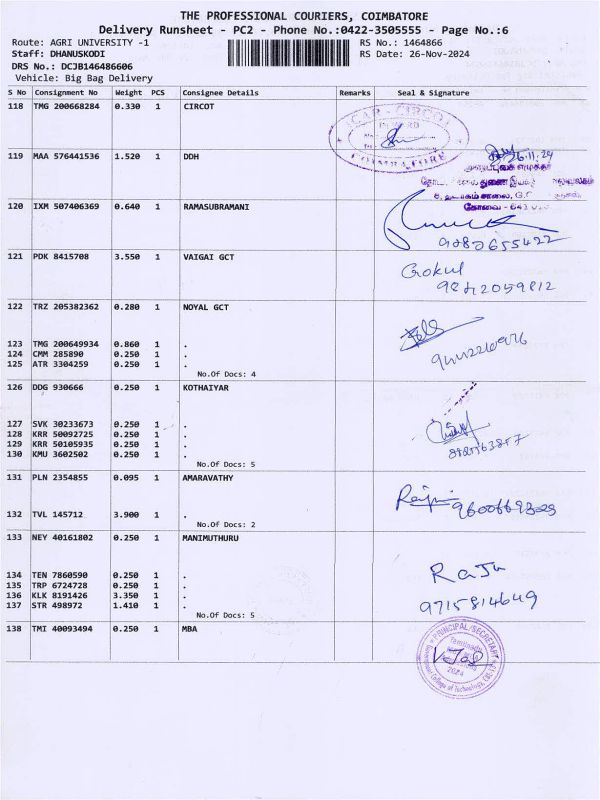 THE PROFESSIONAL COURIERS, COIMBATORE
Delivery Runsheet - PC2 - Phone No.:0422-3505555 - Page No.:6
Route: AGRI UNIVERSITY -1
Staff: DHANUSKODI
DRS No.: DCJB146486606
Vehicle: Big Bag Delivery
RS No.: 1464866
RS Date: 26-Nov-2024
S No Consignment No Weight PCS Consignee Details Remarks Seal & Signature
118 TMG 200668284 0.330 1 CIRCOT
ICAR - CIRCOT
COIMBATORE
119 MAA 576441536 1.520 1 DDH
26.11.24
120 IXM 507406369 0.640 1 RAMASUBRAMANI
9080655422
121 PDK 8415708 3.550 1 VAIGAI GCT
Gokul
122 TRZ 205382362 0.280 1 NOYAL GCT
123 TMG 200649934 0.860 1 .
124 CMM 285890 0.250 1 .
125 ATR 3304259 0.250 1 .
No.Of Docs: 4
126 DDG 930666 0.250 1 KOTHAIYAR
127 SVK 30233673 0.250 1 .
128 KRR 50092725 0.250 1 .
129 KRR 50105935 0.250 1 .
130 KMU 3602502 0.250 1 .
No.Of Docs: 5
131 PLN 2354855 0.095 1 AMARAVATHY
132 TVL 145712 3.900 1 .
No.Of Docs: 2
133 NEY 40161802 0.250 1 MANIMUTHURU
134 TEN 7860590 0.250 1 .
135 TRP 6724728 0.250 1 .
136 KLK 8191426 3.350 1 .
137 STR 498972 1.410 1 .
No.Of Docs: 5
RaJu
9715814649
138 TMI 40093494 0.250 1 MBA
PRINCIPAL/SECRETARY